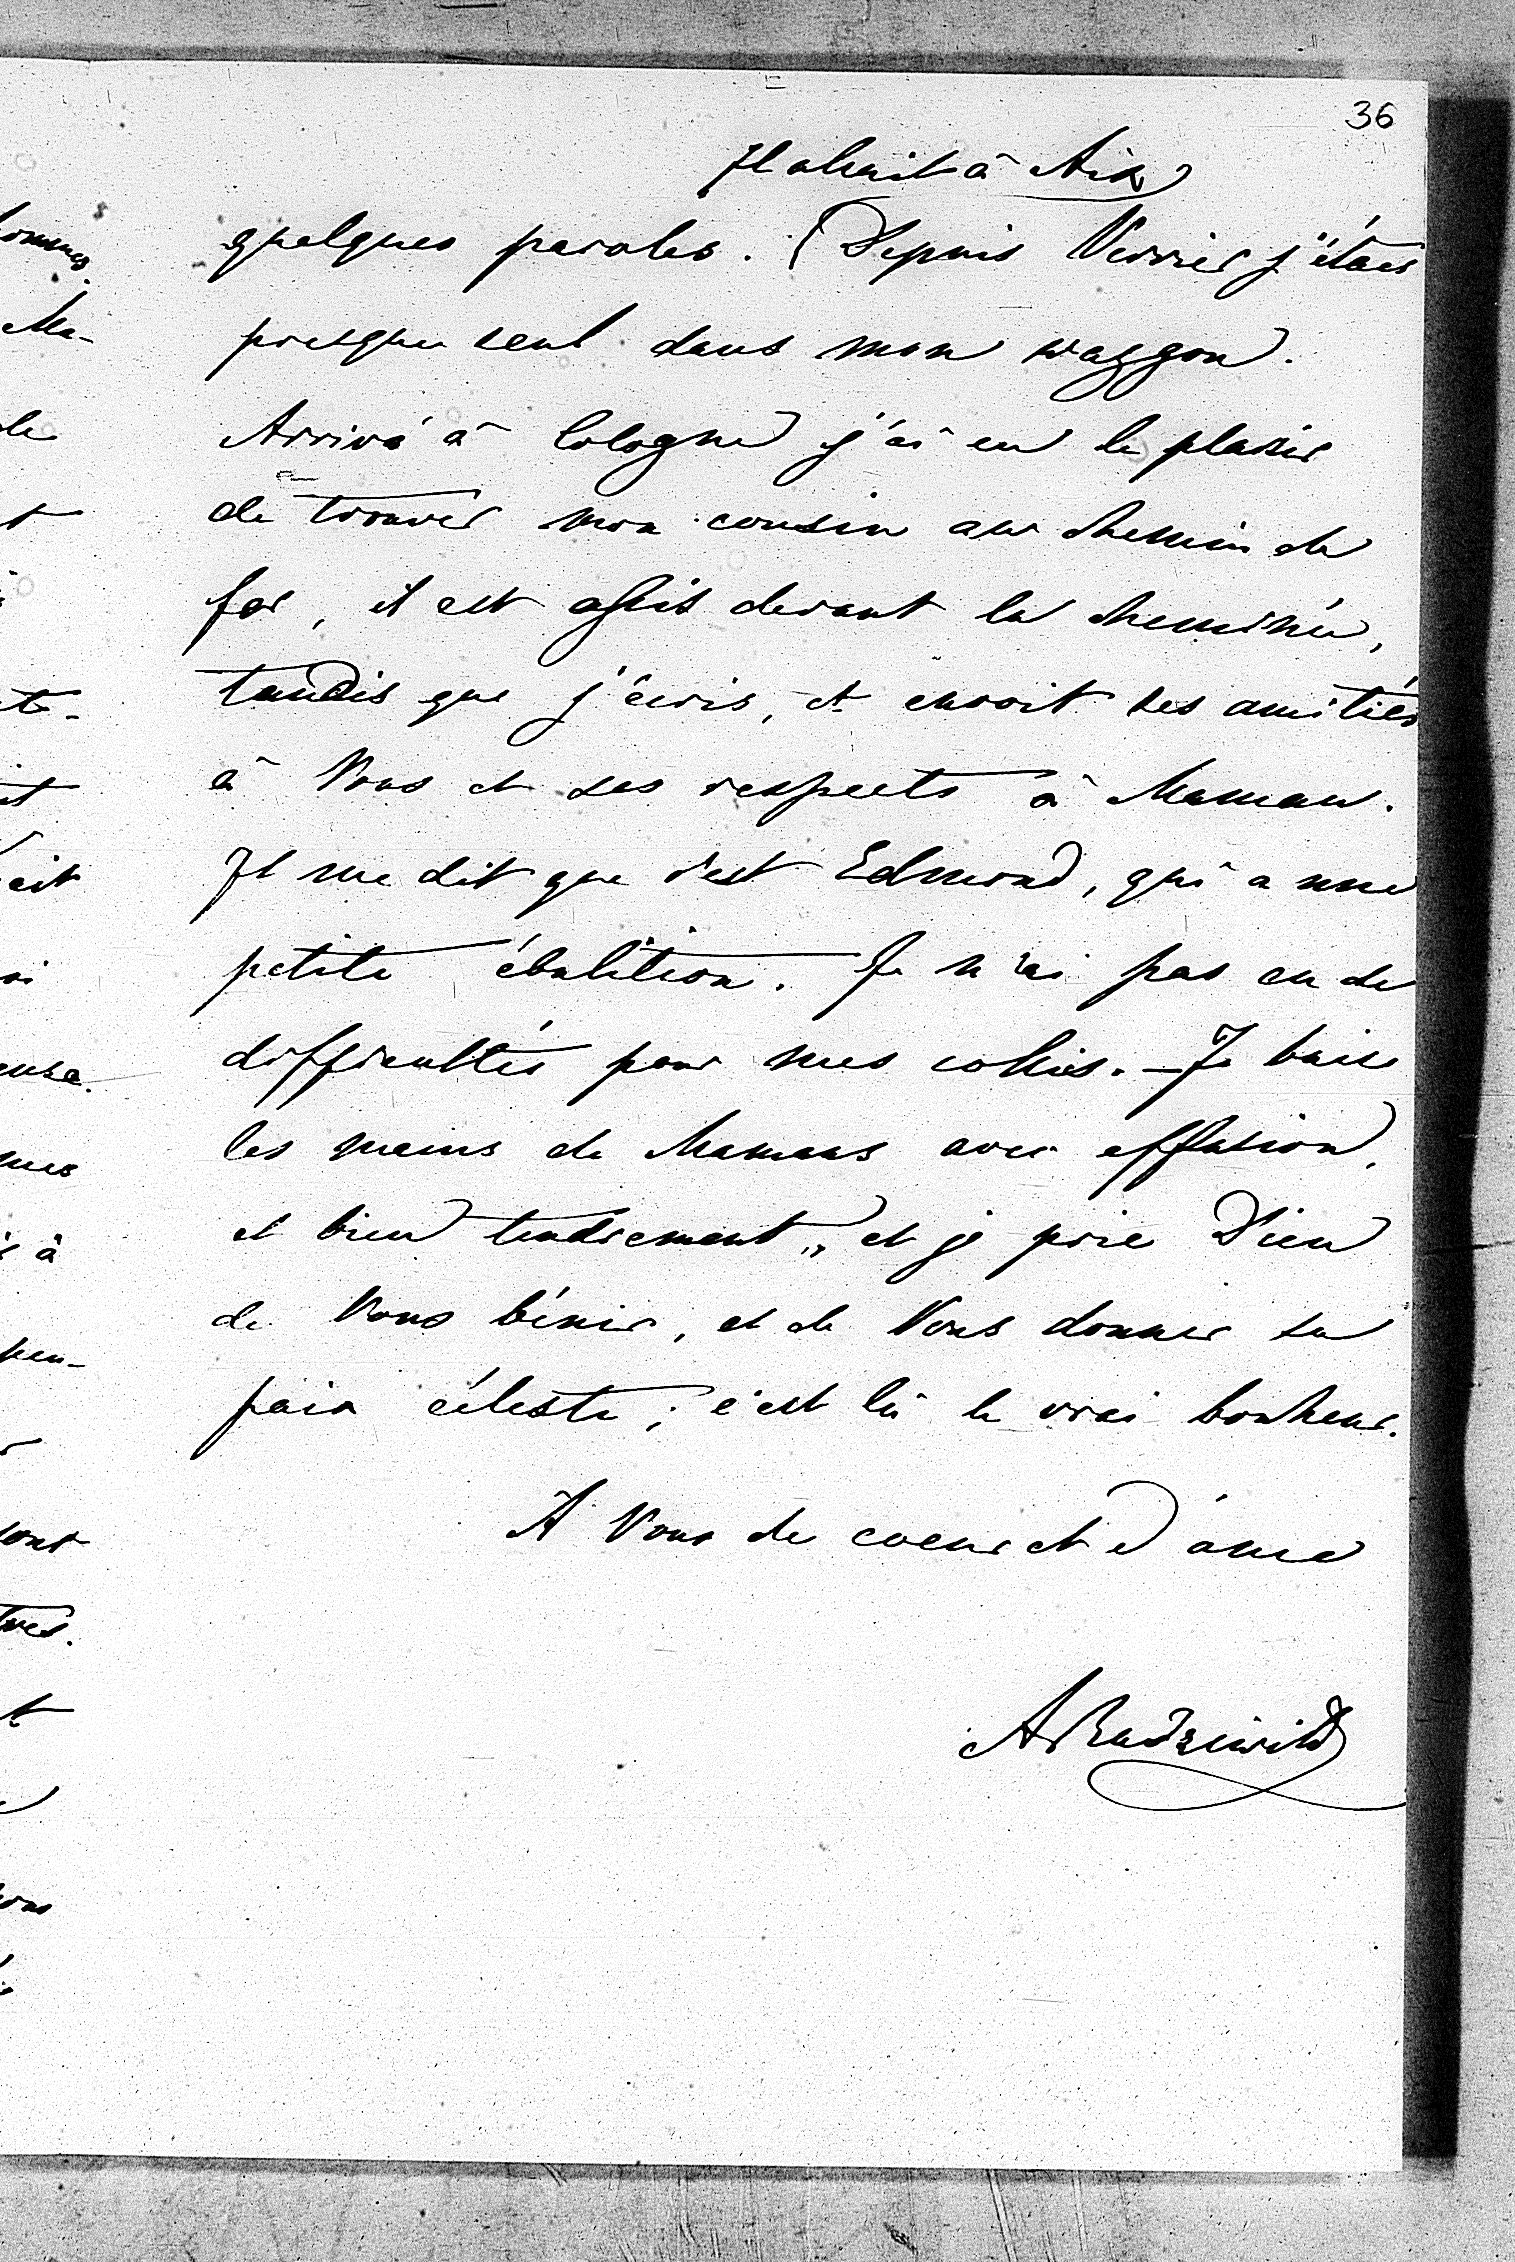 36
Il allait à Aix
quelques paroles. (Depuis Vervier j'étais
presque seul dans mon waggon.
Arrivé à Cologne j'ai eu le plaisir
de trouver mon cousin au chemin de
fer, il est assis devant la cheminée,
tandis que j'écris, et envoit ses amitiés
à Vous et ses respects à Maman.
Il me dit que c'est Edmond, qui a une
petite ébulition. Je n'ai pas eu de
difficultés pour mes collies. — Je baise
les mains de Maman avec effusion,
et bien tendrement,, et je prie Dieu
de Vous bénir, et de Vous donner sa
paix céleste; c'est là le vrai bonheur.
A Vous de coeur et d'âme
ARadziwill